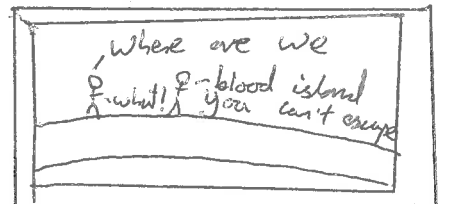 where are we
what!
blood island
you can't escape